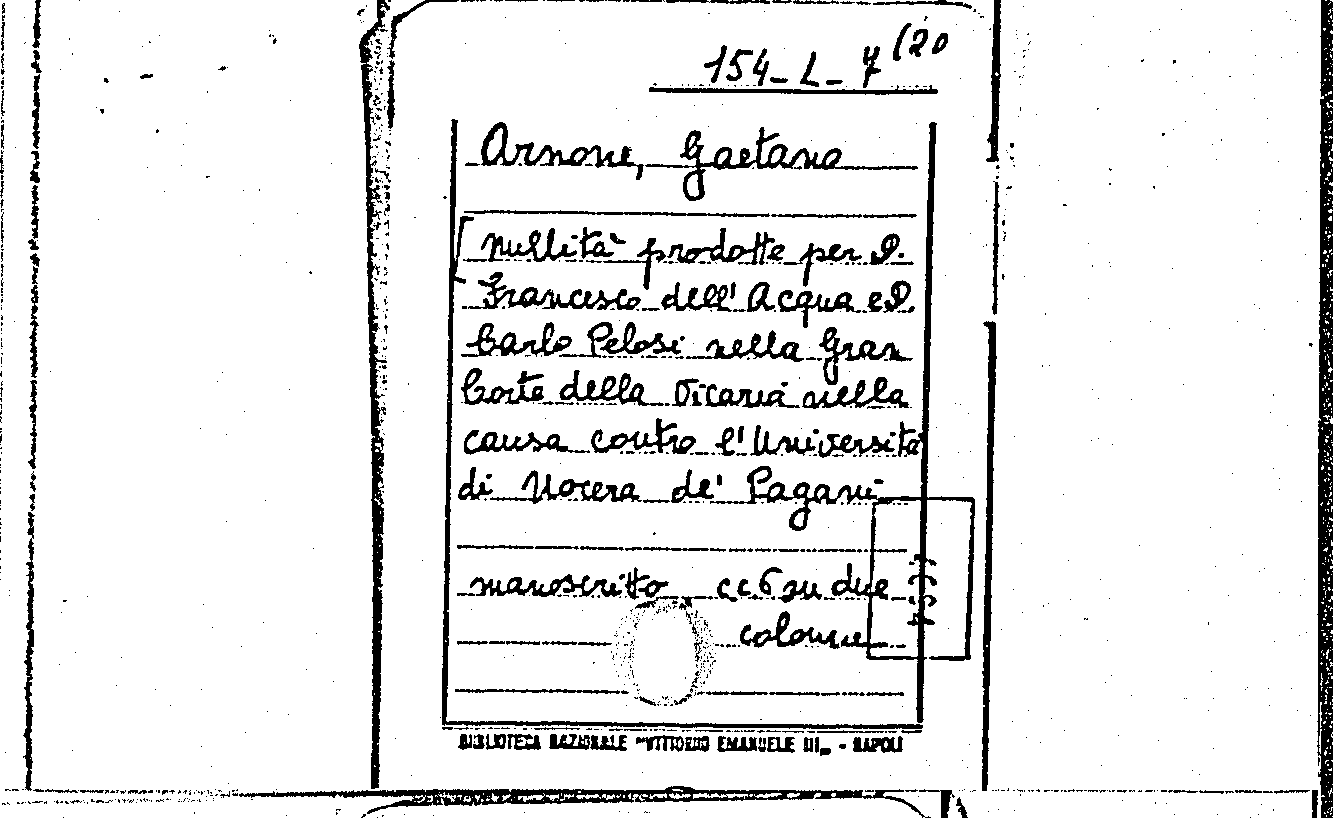 154-L-7 (20
Arnone, Gaetano
[Nullità prodotte per D.
Francesco dell'Acqua e D.
Carlo Pelosi nella Gran
Corte della Vicaria nella
causa contro l'Università
di Nocera de' Pagani
manoscritto cc 6 su due
colonne
BIBLIOTECA NAZIONALE "VITTORIO EMANUELE III„ - NAPOLI